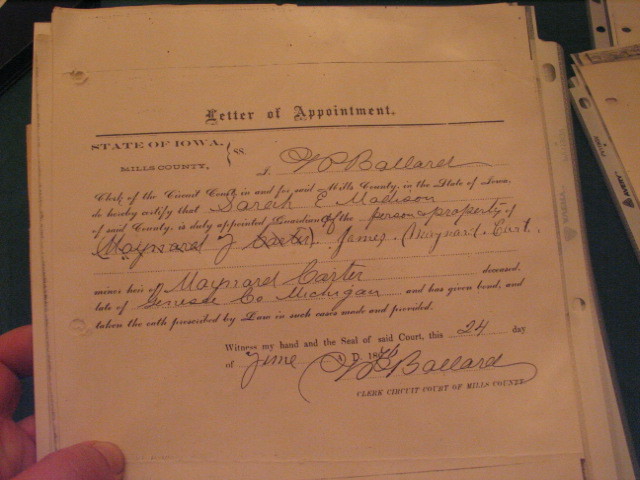 Letter of Appointment.
STATE OF IOWA,
MILLS COUNTY,
SS.
I, W P Ballard
Clerk of the Circuit Court in and for said Mills County, in the State of Iowa,
do hereby certify that Sarah E Mattison
of said County, is duly appointed Guardian of the person & property of
(Maynard J Carter) James (Maynard) Cart
minor heir of Maynard Carter deceased,
late of Genesee Co Michigan and has given bond, and
taken the oath prescribed by Law in such cases made and provided.
Witness my hand and the Seal of said Court, this 24 day
of June A. D. 1876
W P Ballard
CLERK CIRCUIT COURT OF MILLS COUNTY